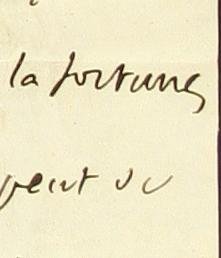 la fortune,
peut ou